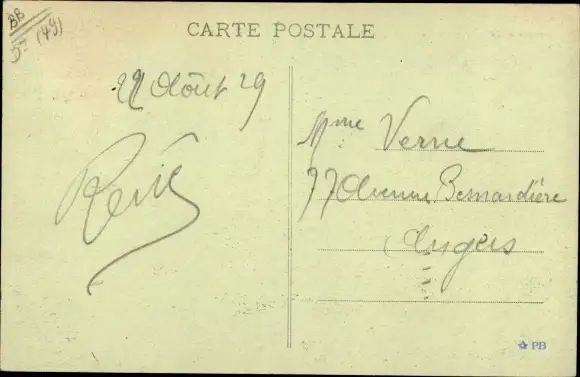 BB
5- (49)
CARTE POSTALE
22 Août 29
René
Mme Verne
77 Avenue Besnardière
Angers
PB